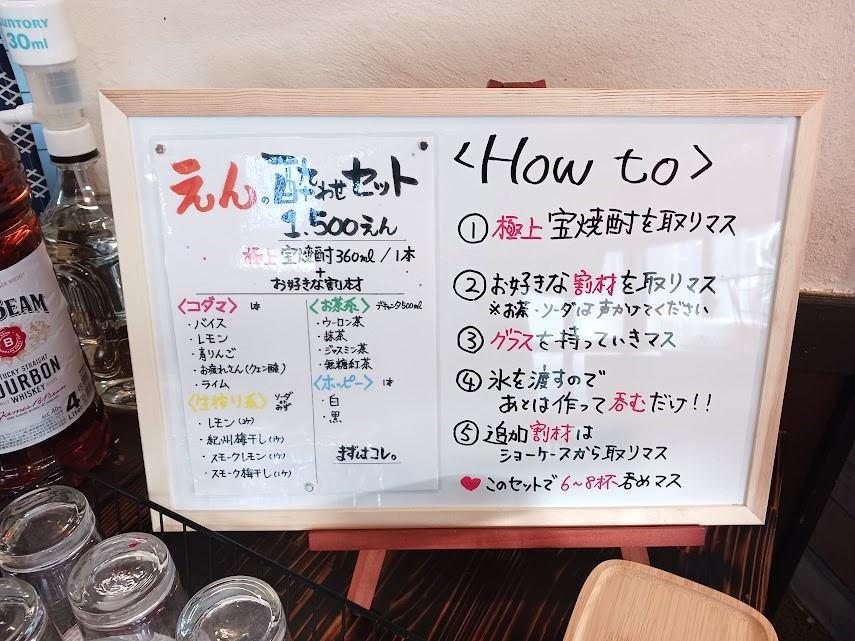 SUNTORY
30ml
BEAM
KENTUCKY STRAIGHT
BOURBON
WHISKEY
4
えんの酔わせセット
1.500えん
極上宝焼酎360ml/1本
+
お好きな割材
〈コダマ〉 1本
・バイス
・レモン
・青りんご
・お疲れさん(クエン酸)
・ライム
〈生搾り系〉 ソーダ or みず
・レモン(2ケ)
・紀州梅干し(1ケ)
・スモークレモン(1ケ)
・スモーク梅干し(1ケ)
〈お茶系〉 デキャンタ500ml
・ウーロン茶
・抹茶
・ジャスミン茶
・無糖紅茶
〈ホッピー〉 1本
・白
・黒
まずはコレ。
<How to>
① 極上 宝焼酎を取りマス
② お好きな割材を取りマス
※お茶・ソーダは声かけてください
③ グラスを持っていきマス
④ 氷を渡すので
あとは作って呑むだけ!!
⑤ 追加割材は
ショーケースから取りマス
♥ このセットで6~8杯呑めマス